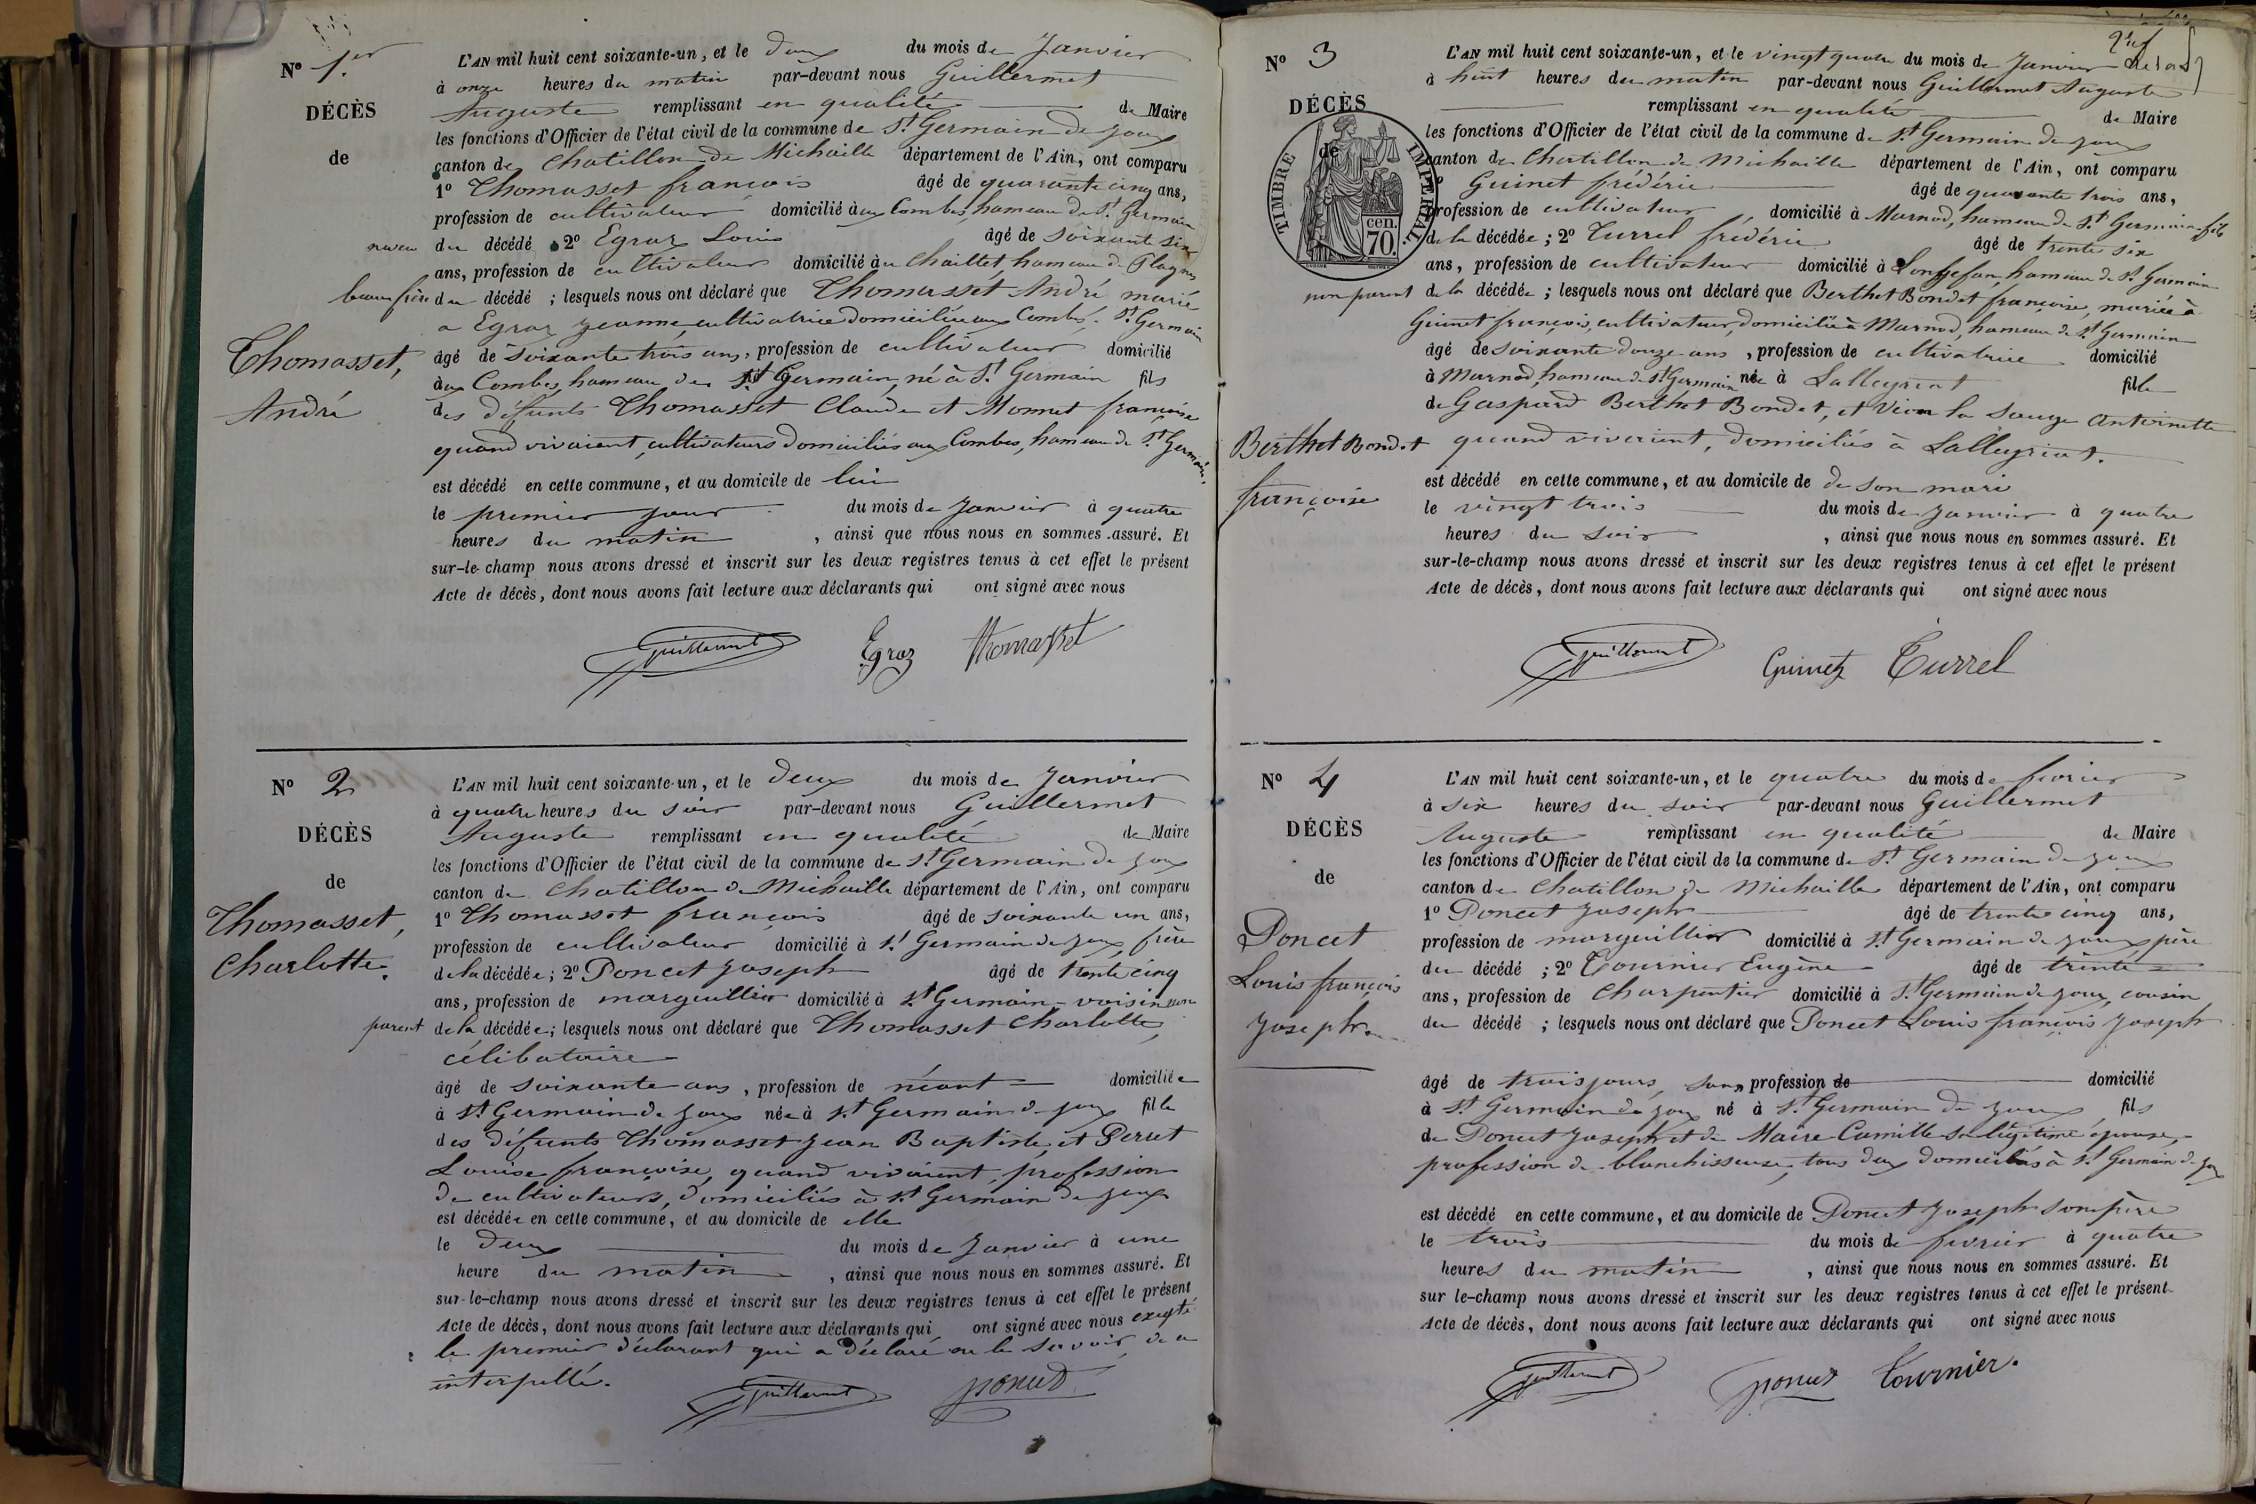 N° 1.er
DÉCÈS
de
Thomasset,
André
L'AN mil huit cent soixante-un, et le deux du mois de Janvier
à onze heures du matin par-devant nous Guillermet
Auguste remplissant en qualité de Maire
les fonctions d'Officier de l'état civil de la commune de St Germain de Joux
canton de Chatillon de Michaille département de l'Ain, ont comparu
1° Thomasset françois âgé de quarante cinq ans,
profession de cultivateur domicilié à aux Combes, hameau de St Germain
neveu du décédé 2° Egraz Louis âgé de soixante six
ans, profession de cultivateur domicilié à au Chaillet hameau de Plagnes
beau frère du décédé ; lesquels nous ont déclaré que Thomasset André marié
a Egraz Jeanne, cultivatrice domiciliée aux Combes, St Germain
âgé de soixante trois ans, profession de cultivateur domicilié
aux Combes hameau de St Germain, né à St Germain fils
des défunts Thomasset Claude et Monnet françoise
quand vivaient, cultivateurs domiciliés aux Combes, hameau de St Germain.
est décédé en cette commune, et au domicile de lui
le premier jour du mois de Janvier à quatre
heures du matin , ainsi que nous nous en sommes assuré. Et
sur-le-champ nous avons dressé et inscrit sur les deux registres tenus à cet effet le présent
Acte de décès, dont nous avons fait lecture aux déclarants qui ont signé avec nous
Guillermet Egraz Thomasset
N° 2
DÉCÈS
de
Thomasset,
Charlotte.
L'AN mil huit cent soixante-un, et le deux du mois de Janvier
à quatre heures du soir par-devant nous Guillermet
Auguste remplissant en qualité de Maire
les fonctions d'Officier de l'état civil de la commune de St Germain de Joux
canton de Chatillon de Michaille département de l'Ain, ont comparu
1° Thomasset françois âgé de soixante un ans,
profession de cultivateur domicilié à St Germain de Joux, frère
de la décédée ; 2° Poncet Joseph âgé de trente cinq
ans, profession de marguillier domicilié à St Germain - voisin non
parent de la décédée ; lesquels nous ont déclaré que Thomasset Charlotte,
célibataire
âgé de soixante ans, profession de néant domiciliée
à St Germain de Joux née à St Germain de Joux fille
des défunts Thomasset Jean Baptiste, et Perret
Louise françoise, quand vivaient, profession
de cultivateurs, domiciliés à St Germain de Joux
est décédée en cette commune, et au domicile de elle
le deux du mois de Janvier à une
heure du matin , ainsi que nous nous en sommes assuré. Et
sur-le-champ nous avons dressé et inscrit sur les deux registres tenus à cet effet le présent
Acte de décès, dont nous avons fait lecture aux déclarants qui ont signé avec nous excepté
le premier déclarant qui a déclaré ne le savoir, de ce
interpellé.
Guillermet Poncet
N° 3
DÉCÈS
de
TIMBRE IMPÉRIAL.
70. cen.
Berthet Bondet
françoise
L'AN mil huit cent soixante-un, et le vingt quatre du mois de Janvier
à huit heures du matin par-devant nous Guillermet Auguste
remplissant en qualité de Maire
les fonctions d'Officier de l'état civil de la commune de St Germain de Joux
canton de Chatillon de Michaille département de l'Ain, ont comparu
Guinet frédéric âgé de quarante trois ans,
profession de cultivateur domicilié à Marnod, hameau de St Germain fils
de la décédée ; 2° Turrel frédéric âgé de trente six
ans, profession de cultivateur domicilié à Longefan, hameau de St Germain
non parent de la décédée ; lesquels nous ont déclaré que Berthet Bondet françoise, mariée à
Guinet françois, cultivateur, domicilié à Marnod, hameau de St Germain
âgé de soixante douze ans, profession de cultivatrice domicilié
à Marnod, hameau de St Germain née à Lalleyriat fille
de Gaspard Berthet Bondet, et Vion la Sauge Antoinette
quand vivaient, domiciliés à Lalleyriat.
est décédé en cette commune, et au domicile de de son mari
le vingt trois du mois de Janvier à quatre
heures du soir , ainsi que nous nous en sommes assuré. Et
sur-le-champ nous avons dressé et inscrit sur les deux registres tenus à cet effet le présent
Acte de décès, dont nous avons fait lecture aux déclarants qui ont signé avec nous
Guillermet Guinet Turrel
N° 4
DÉCÈS
de
Poncet
Louis françois
Joseph
L'AN mil huit cent soixante-un, et le quatre du mois de fevrier
à six heures du soir par-devant nous Guillermet
Auguste remplissant en qualité de Maire
les fonctions d'Officier de l'état civil de la commune de St Germain de Joux
canton de Chatillon de Michaille département de l'Ain, ont comparu
1° Poncet Joseph âgé de trente cinq ans,
profession de marguillier domicilié à St Germain de Joux, père
du décédé ; 2° Tournier Eugène âgé de trente
ans, profession de Charpentier domicilié à St Germain de Joux, cousin
du décédé ; lesquels nous ont déclaré que Poncet Louis françois Joseph
âgé de trois jours, sans profession de domicilié
à St Germain de Joux né à St Germain de Joux fils
de Poncet Joseph et de Maire Camille sa légitime épouse,
profession de blanchisseuse, tous deux domiciliés à St Germain de Joux
est décédé en cette commune, et au domicile de Poncet Joseph son père
le trois du mois de fevrier à quatre
heures du matin , ainsi que nous nous en sommes assuré. Et
sur le-champ nous avons dressé et inscrit sur les deux registres tenus à cet effet le présent
Acte de décès, dont nous avons fait lecture aux déclarants qui ont signé avec nous
Guillermet Poncet Tournier.